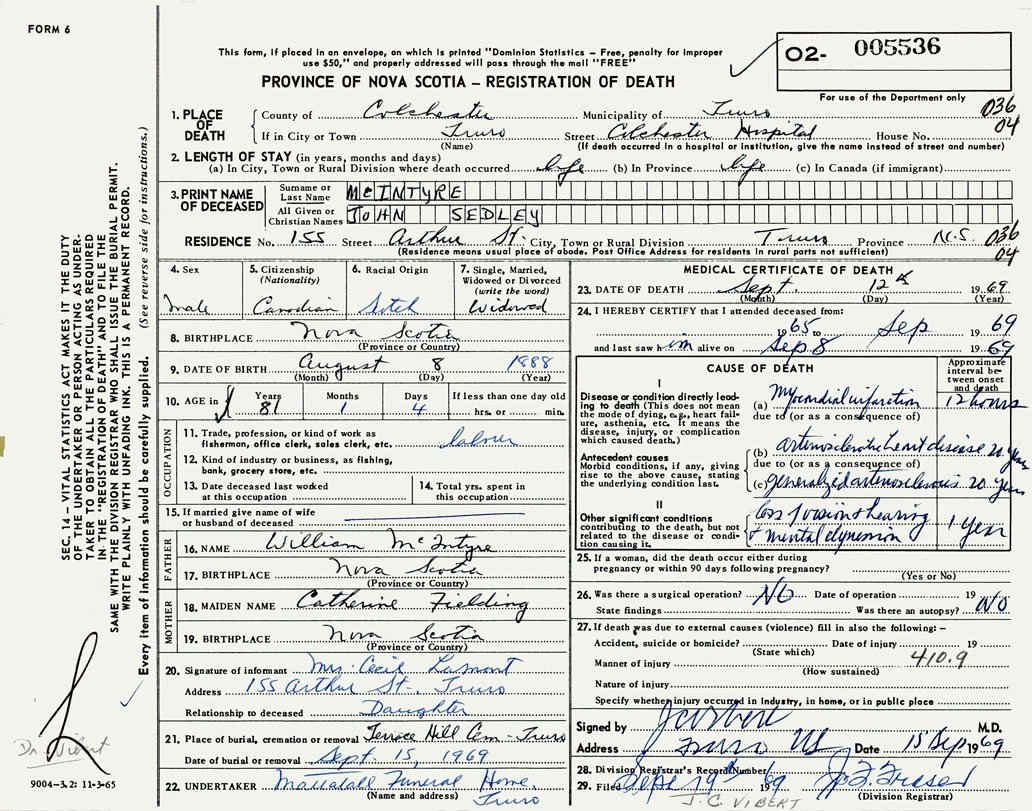 FORM 6
This form, if placed in an envelope, on which is printed "Dominion Statistics – Free, penalty for improper
use $50," and properly addressed will pass through the mail "FREE"
PROVINCE OF NOVA SCOTIA – REGISTRATION OF DEATH
O2- 005536
For use of the Department only
036
04
SEC. 14 – VITAL STATISTICS ACT MAKES IT THE DUTY
OF THE UNDERTAKER OR PERSON ACTING AS UNDER-
TAKER TO OBTAIN ALL THE PARTICULARS REQUIRED
IN THE "REGISTRATION OF DEATH" AND TO FILE THE
SAME WITH THE DIVISION REGISTRAR WHO SHALL ISSUE THE BURIAL PERMIT.
WRITE PLAINLY WITH UNFADING INK. THIS IS A PERMANENT RECORD.
Every item of information should be carefully supplied. (See reverse side for instructions.)
1. PLACE OF DEATH
County of Colchester Municipality of Truro
If in City or Town Truro Street Colchester Hospital House No.
(Name) (If death occurred in a hospital or institution, give the name instead of street and number)
2. LENGTH OF STAY (in years, months and days)
(a) In City, Town or Rural Division where death occurred life (b) In Province life (c) In Canada (if immigrant)
3. PRINT NAME OF DECEASED
Surname or Last Name McINTYRE
All Given or Christian Names JOHN SEDLEY
RESIDENCE No. 155 Street Arthur St. City, Town or Rural Division Truro Province N.S. 036
(Residence means usual place of abode. Post Office Address for residents in rural parts not sufficient) 04
4. Sex
male
5. Citizenship
(Nationality)
Canadian
6. Racial Origin
Scotch
7. Single, Married,
Widowed or Divorced
(write the word)
Widowed
8. BIRTHPLACE Nova Scotia
(Province or Country)
9. DATE OF BIRTH August 8 1888
(Month) (Day) (Year)
10. AGE in
Years Months Days If less than one day old
81 1 4 hrs. or min.
OCCUPATION
11. Trade, profession, or kind of work as
fisherman, office clerk, sales clerk, etc. labrer
12. Kind of industry or business, as fishing,
bank, grocery store, etc.
13. Date deceased last worked
at this occupation
14. Total yrs. spent in
this occupation
15. If married give name of wife
or husband of deceased
FATHER
16. NAME William McIntyre
17. BIRTHPLACE Nova Scotia
(Province or Country)
MOTHER
18. MAIDEN NAME Catherine Fielding
19. BIRTHPLACE Nova Scotia
(Province or Country)
20. Signature of informant Mrs. Cecil Lamont
Address 155 Arthur St., Truro
Relationship to deceased Daughter
21. Place of burial, cremation or removal Terrace Hill Cem - Truro
Date of burial or removal Sept. 15, 1969
22. UNDERTAKER Mattatall Funeral Home,
(Name and address) Truro
Dr. Vibert
9004–3.2: 11-3-65
MEDICAL CERTIFICATE OF DEATH
23. DATE OF DEATH Sept. 12th 1969
(Month) (Day) (Year)
24. I HEREBY CERTIFY that I attended deceased from:
1965 to Sep 1969
and last saw him alive on Sep 8 1969
CAUSE OF DEATH
Approximate
interval be-
tween onset
and death
I
Disease or condition directly lead-
ing to death (This does not mean
the mode of dying, e.g., heart fail-
ure, asthenia, etc. It means the
disease, injury, or complication
which caused death.)
(a) Myocardial infarction 12 hours
due to (or as a consequence of)
Antecedent causes
Morbid conditions, if any, giving
rise to the above cause, stating
the underlying condition last.
(b) arteriosclerotic heart disease 20 years
due to (or as a consequence of)
(c) generalized arteriosclerosis 20 years
II
Other significant conditions
contributing to the death, but not
related to the disease or condi-
tion causing it.
loss of vision & hearing
+ mental 1 year
25. If a woman, did the death occur either during
pregnancy or within 90 days following pregnancy?
(Yes or No)
26. Was there a surgical operation? NO Date of operation 19
State findings Was there an autopsy? NO
27. If death was due to external causes (violence) fill in also the following:–
Accident, suicide or homicide? Date of injury 19
(State which)
Manner of injury 410.9
(How sustained)
Nature of injury
Specify whether injury occurred in industry, in home, or in public place
Signed by J C Vibert M.D.
Address Truro NS Date 15 Sep 1969
28. Division Registrar's Record Number
29. Filed Sept 19th 1969
(Division Registrar)
J. C. VIBERT